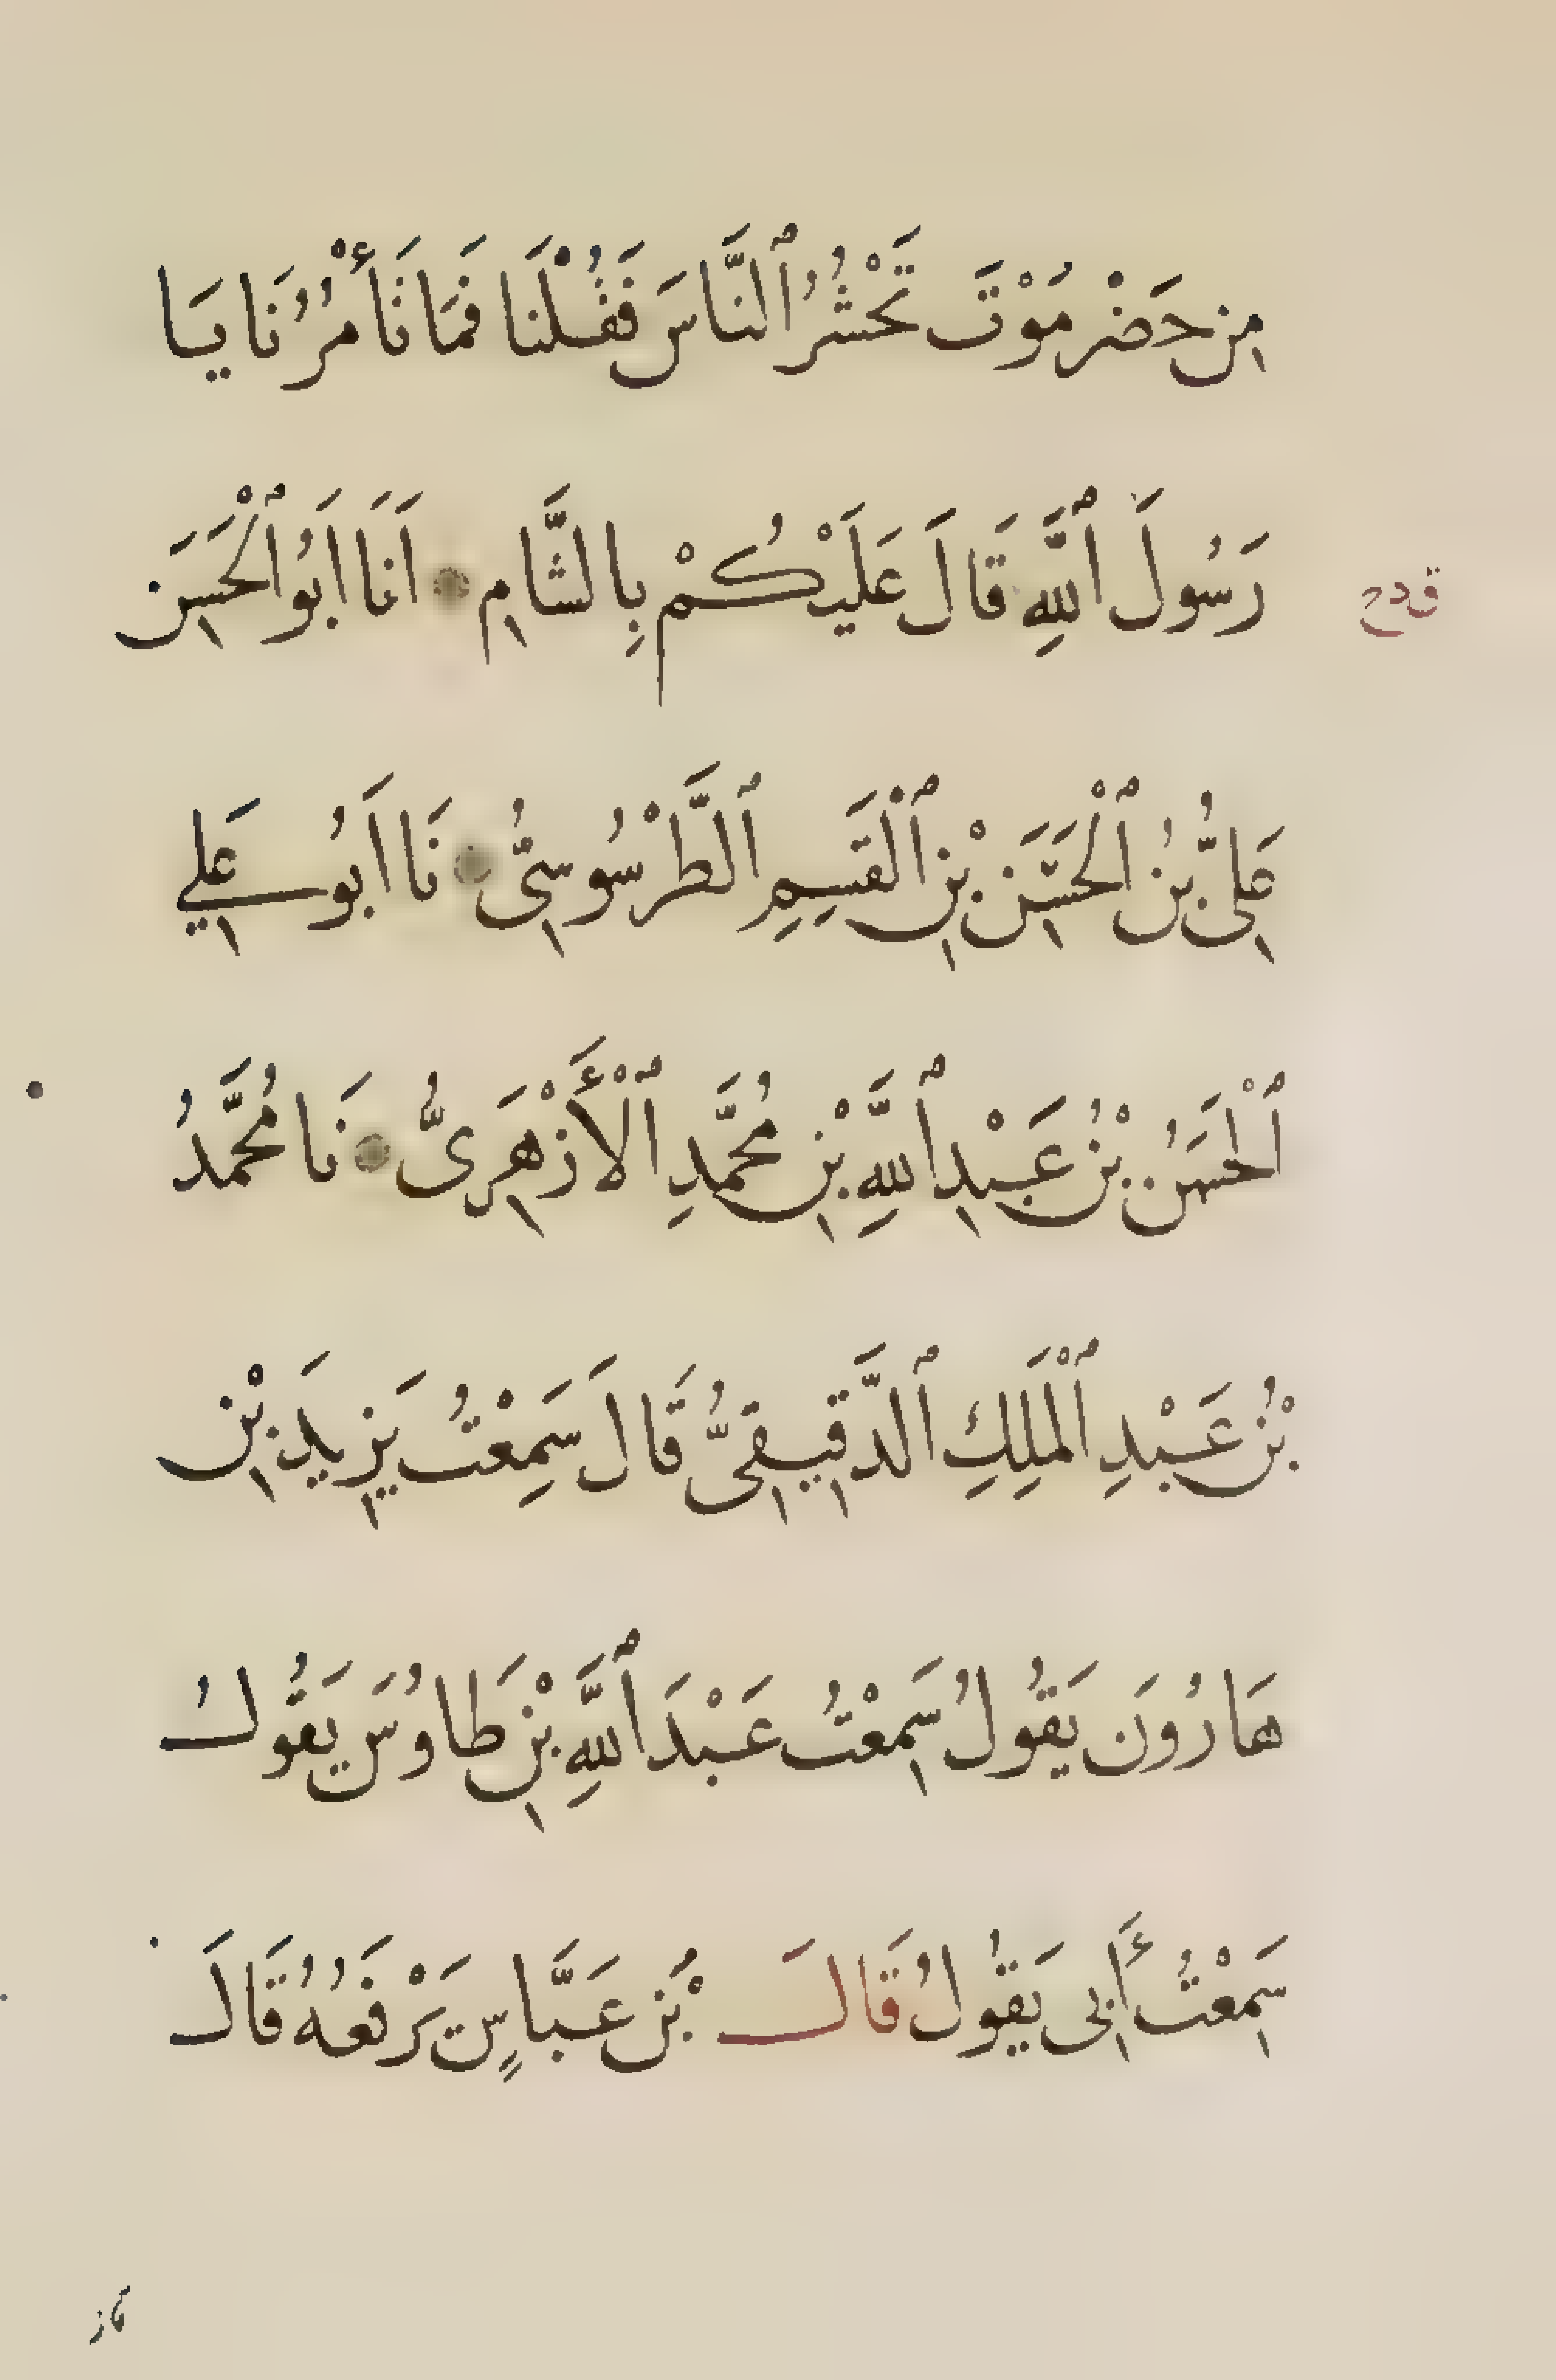 مِن حَضْرمُوْتَ تَحْشُرُ ٱلنَّاسَ فَقُلْنَا فَمَا تَأْمُرُنَا يَا
رَسُولَ ٱللَّهِ قَالَ عَلَيْكُمْ بِالشَّامِ انَا ابُو ٱلْحَسَن
قدح
عَلِىُّ بْنُ ٱلْحَسَنِ بْنِ ٱلْقَسِمِ ٱلطَّرْسُوسِىُّ نَا ابُو عَلِي
ٱلْحَسَنُ بْنُ عَبْدِ ٱللَّهِ بْنِ مُحَمَّدِ ٱلْأَزْهَرِىُّ نَا مُحَمَّدُ
بْنُ عَبْدِ ٱلْمَلِكِ ٱلدَّقِيقِىُّ قَالَ سَمِعْتُ يَزِيدَ بْنِ
هَارُونَ يَقُولُ سَمِعْتُ عَبْدَ ٱللَّهِ بْنِ طَاوُسَ يَقُولُ
سَمِعْتُ أَبِى يَقُولُ قَالَ بْنُ عَبَّاسٍ يَرْفَعُهُ قَالَ